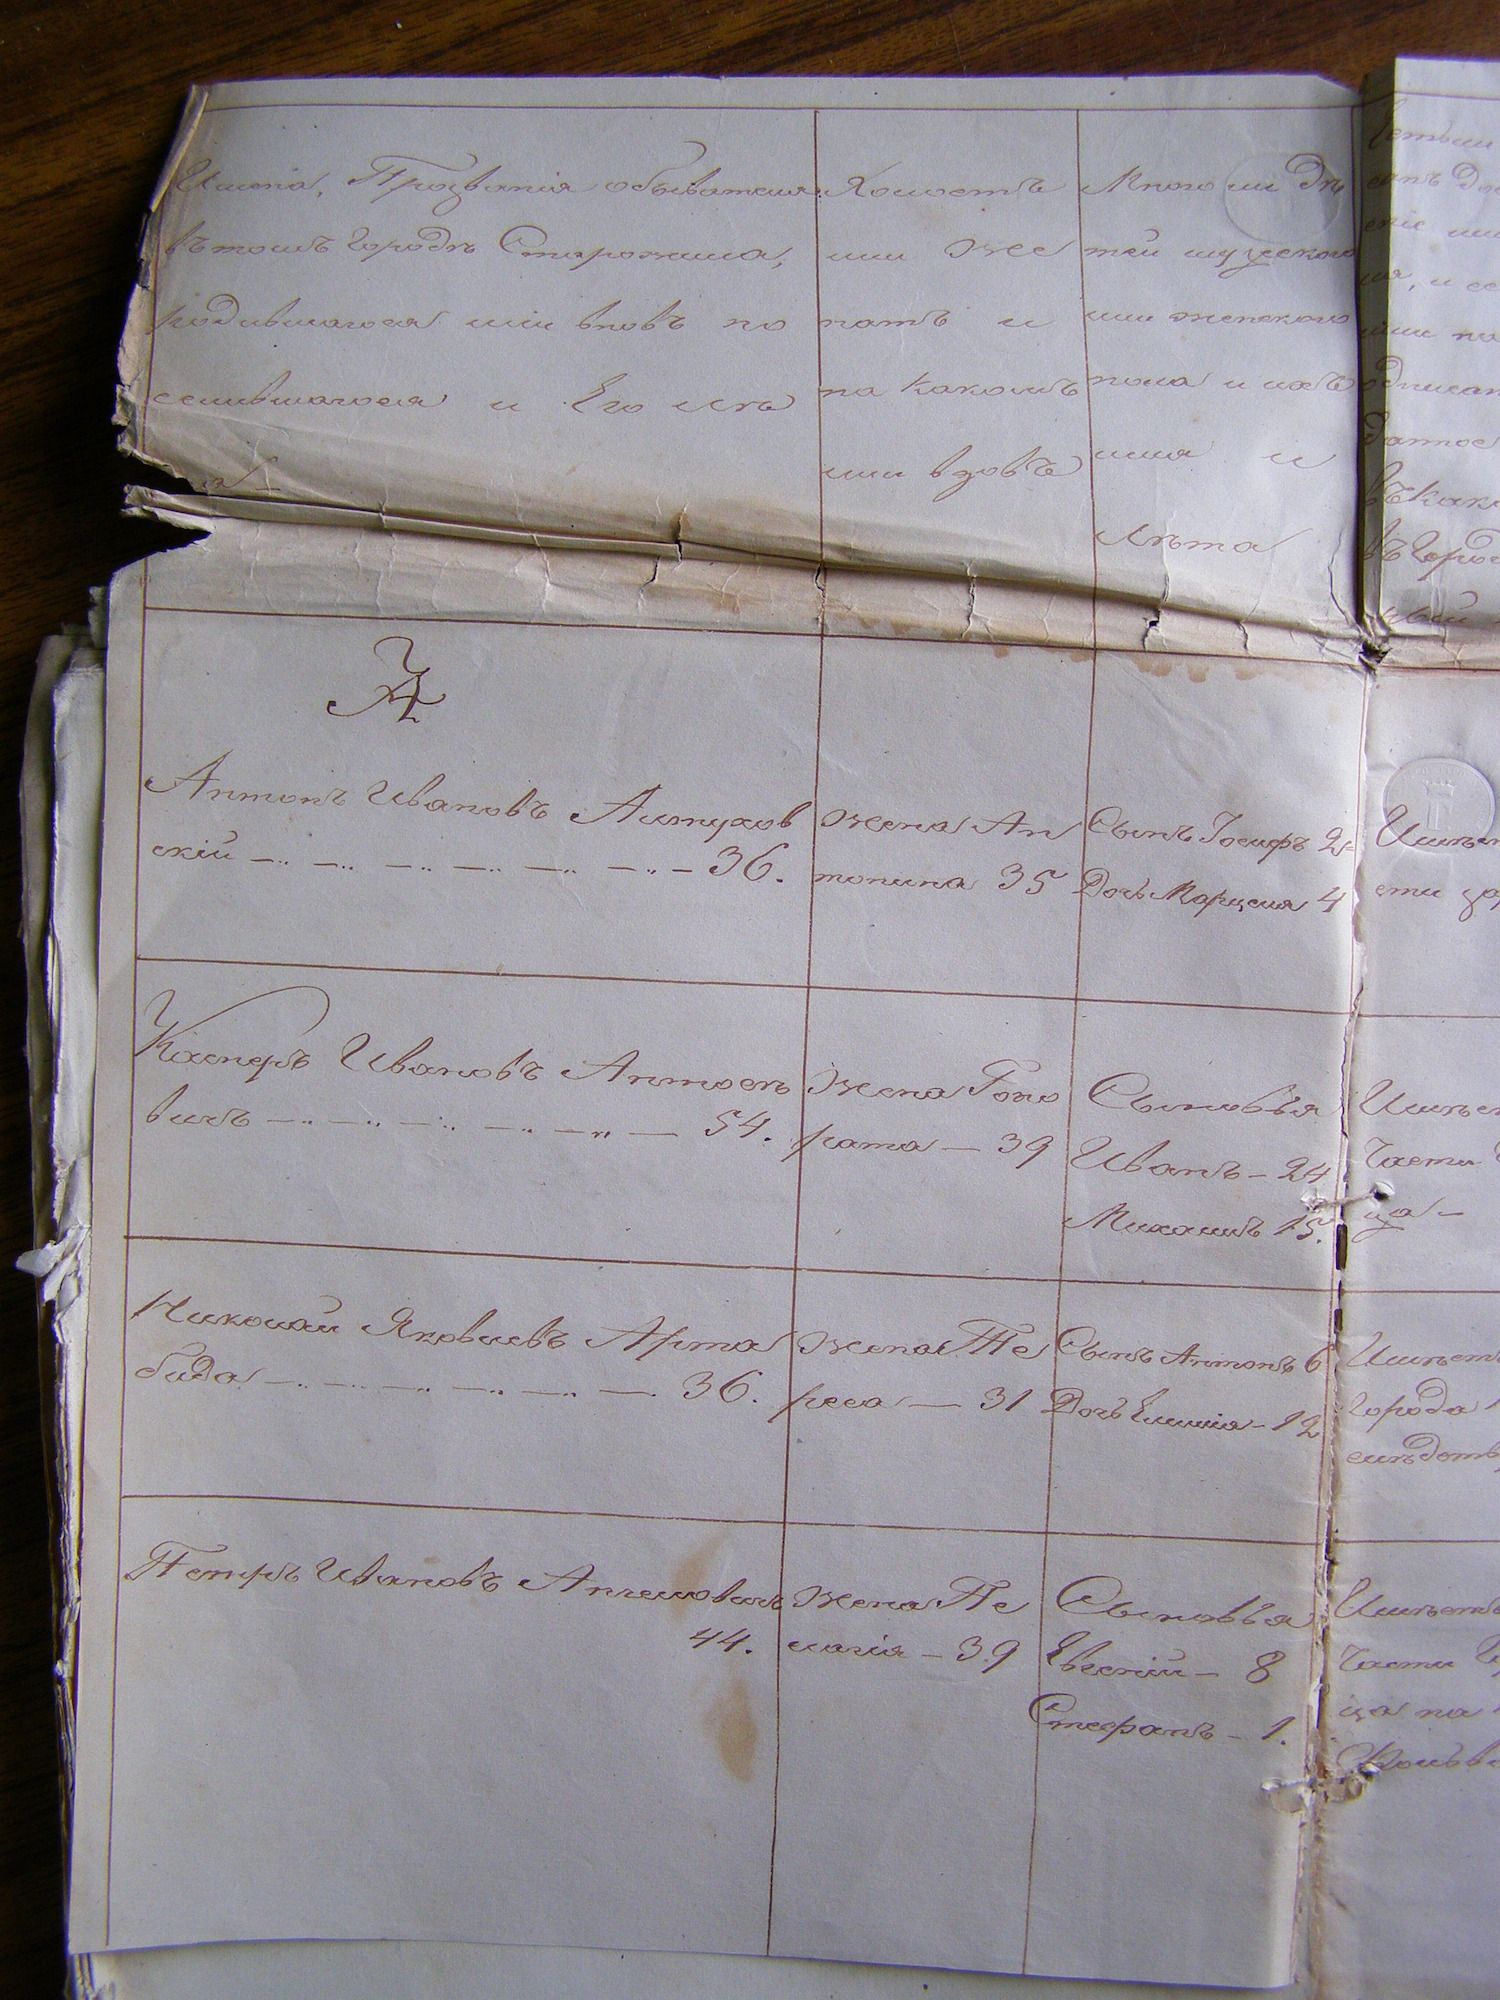 Имена, Прозванія обывателя
въ томъ городѣ Старожила,
родившагося или вновь по
селившагося и Его лѣ
та
Холостъ
или же
натъ и
на Какомъ
или вдовъ
Много ли дѣ
тей мужескаго
или женскаго
пола и ихъ
имя и
лѣта
А
Антонъ Ивановъ Алтухов
скій 36.
жена Ан
тонина 35
Сынъ Іосифъ 2
Дочь Марцеля 4
Касперъ Ивановъ Антосе
вичъ 54.
жена Гоно
рата — 39
Сыновья
Иванъ — 24
Михаилъ 15.
Николай Яковлевъ Арта
бида 36.
жена Те
реса — 31
Сынъ Антонъ 6
Дочь Емилія — 12
Петръ Ивановъ Ангеловичъ
44.
жена Пе
лагія — 39
Сыновья
Евгеній — 8
Стефанъ — 1.
Части
ца —
города
ца на